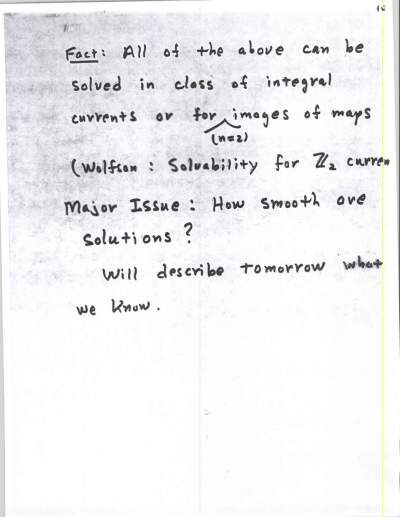 16
Fact: All of the above can be
solved in class of integral
currents or for images of maps
(n=2)
(Wolfson: Solvability for ℤ₂ curren
Major Issue: How smooth are
solutions?
Will describe tomorrow what
we know.